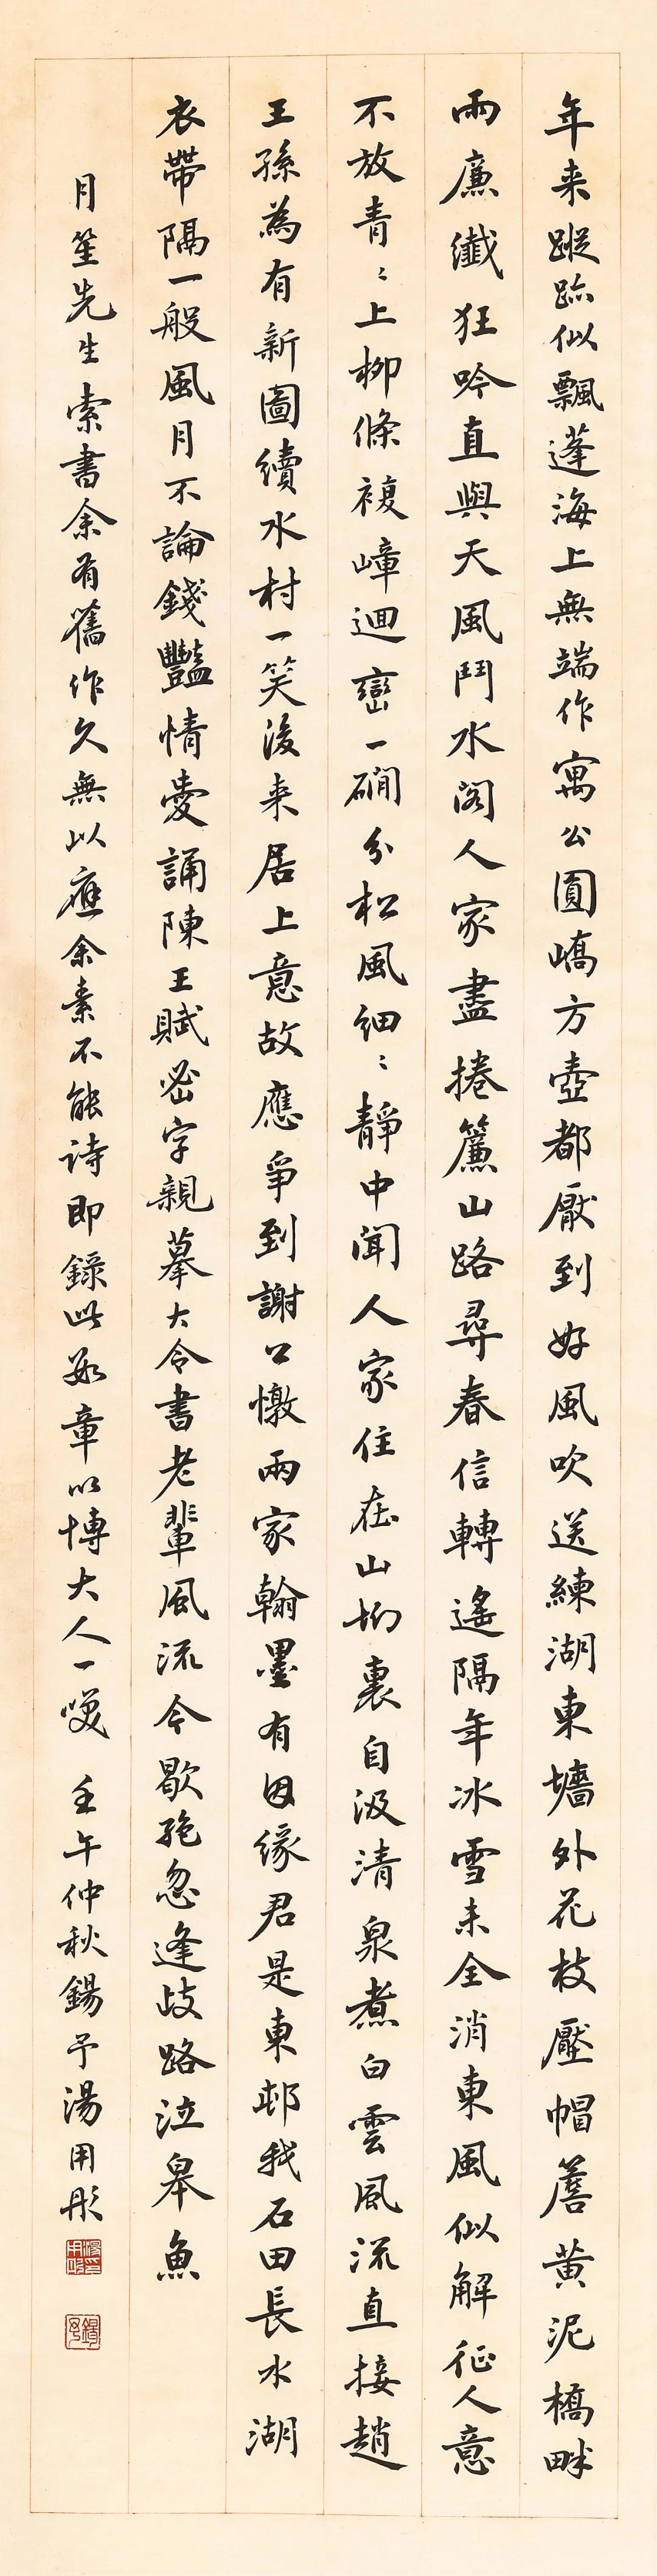 年来蹤跡似飄蓬海上無端作寓公圓嶠方壺都厭到好風吹送練湖東墻外花枝壓帽簷黄泥橋畔
雨廉纖狂吟直與天風鬥水閣人家盡捲簾山路尋春信轉遙隔年冰雪未全消東風似解征人意
不放青〻上柳條複嶂迴巒一磵分松風細〻靜中聞人家住在山坳裏自汲清泉煮白雲風流直接趙
王孫為有新圖續水村一笑後来居上意故應爭到謝公墩兩家翰墨有因緣君是東邨我石田長水湖
衣帶隔一般風月不論錢豔情愛誦陳王賦密字親摹大令書老輩風流今歇絶忽逢歧路泣皋魚
月笙先生索書余有舊作久無以應余素不能诗即錄此數章以博大人一噱 壬午仲秋錫予湯用彤
湯用彤印
錫予